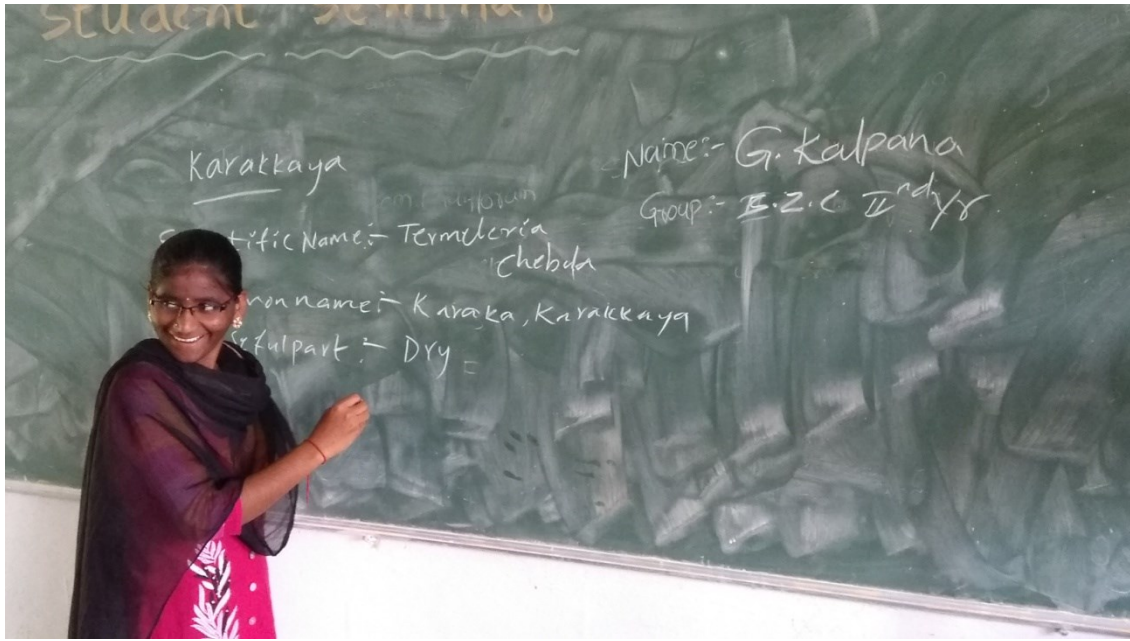 Student Seminar
Karakkaya
Name:- G. Kalpana
Group:- B.Z.C IInd yr
tificName:- Termeleria
chebula
monname:- Karaka, Karakkaya
sefulpart:- Dry